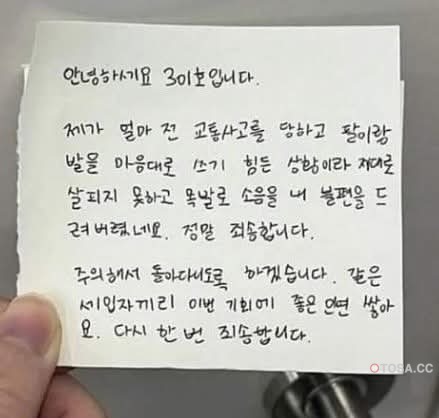 안녕하세요 301호입니다.
제가 얼마 전 교통사고를 당하고 팔이랑
발을 마음대로 쓰기 힘든 상황이라 제대로
살피지 못하고 목발로 소음을 내 불편을 드
려버렸네요. 정말 죄송합니다.
주의해서 돌아다니도록 하겠습니다. 같은
세입자끼리 이번 기회에 좋은 인연 쌓아
요. 다시 한 번 죄송합니다.
OTOSA.CC